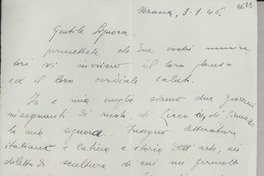 Verona, 3-1-46.
Gentile Signora.
permettete che due vostri
vi inviino il loro
ed il loro cordiale saluto.
Io e mia moglie siamo due giovani
insegnanti di
la mia signora insegna letteratura
italiana e latina e storia dell'arte, mi
diletto di scultura di cui mi permetto